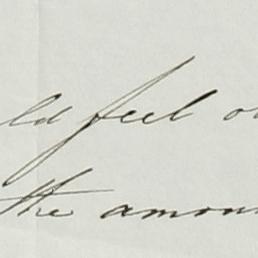 ld feel o
the amoun